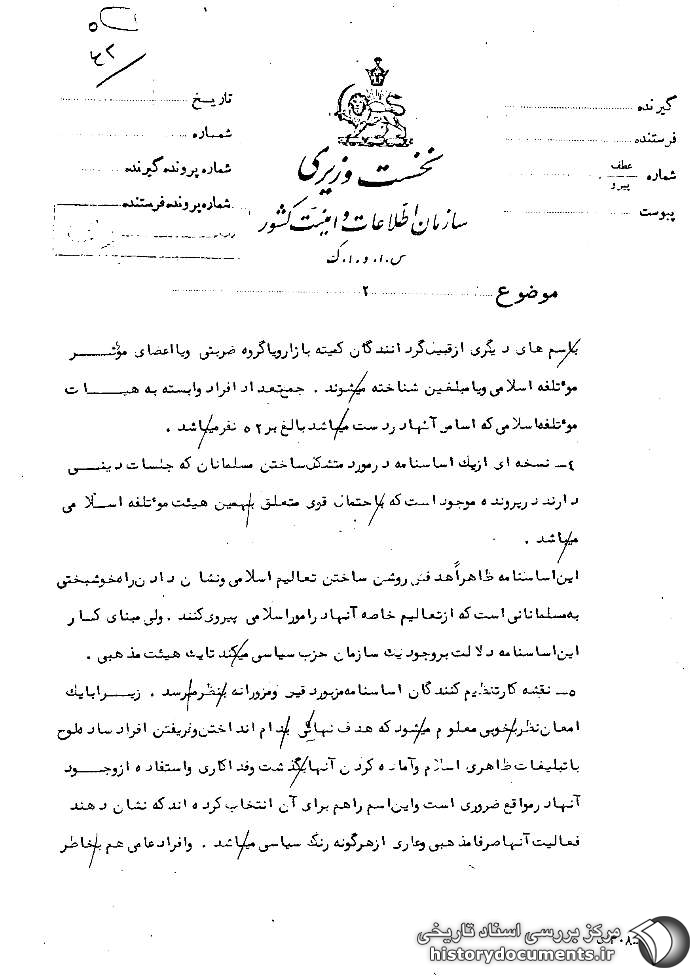 ۶۲
گیرنده
فرستنده
شماره عطف پیرو
پیوست
نخست وزیری
سازمان اطلاعات و امنیت کشور
س.ا.و.ا.ک
تاریخ
شماره
شماره پرونده گیرنده
شماره پرونده فرستنده
موضوع ۲
باسم های دیگری ازقبیل گردانندگان کمیته بازارویاگروه ضربتی ویااعضای موثر
موتلفه اسلامی ویامبلغین شناخته میشوند . جمع تعداد افراد وابسته به هیات
موتلفه اسلامی که اسامی آنهادردست میباشد بالغ بر ۵۲ نفرمیباشد .
۴ـ نسخه ای ازیک اساسنامه درمورد متشکل ساختن مسلمانان که جلسات دینی
دارند درپرونده موجود است که باحتمال قوی متعلق بهمین هیئت موتلفه اسلامی
میباشد .
این اساسنامه ظاهراً هدفش روشن ساختن تعالیم اسلامی ونشان دادن راه خوشبختی
به مسلمانانی است که ازتعالیم خاصه آنهادرامور اسلامی پیروی کنند . ولی مبنای کار
این اساسنامه دلالت بروجود یک سازمان حزب سیاسی میکند تایک هیئت مذهبی .
۵ـ نقشه کارتنظیم کنندگان اساسنامه مزبور دقیق ومزورانه بنظرمیرسد . زیرا بایک
امعان نظر بخوبی معلوم میشود که هدف نهائی بدام انداختن وفریفتن افراد ساده لوح
با تبلیغات ظاهری اسلام وآماده کردن آنها بگذشت وفداکاری واستفاده ازوجود
آنهادرمواقع ضروری است واین اسم راهم برای آن انتخاب کرده اند که نشان دهند
فعالیت آنهاصرفا مذهبی وعاری ازهرگونه رنگ سیاسی میباشد . وافراد عامی هم بخاطر
مرکز بررسی اسناد تاریخی
historydocuments.ir